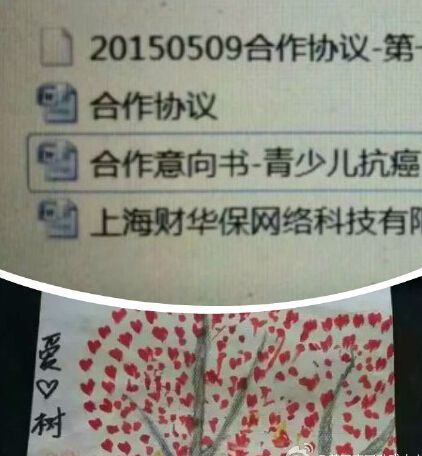 20150509合作协议-第
合作协议
合作意向书-青少儿抗癌
上海财华保网络科技有
爱
♡
树